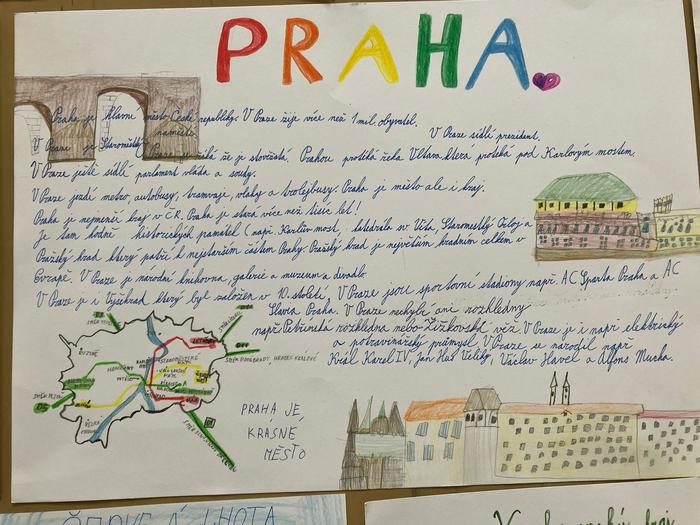 PRAHA
Praha je hlavní město České republiky. V Praze žije více než 1 mil. obyvatel.
V Praze sídlí prezident.
V Praze je Staroměstské náměstí.
Praze se říká že je stověžatá. Prahou protéká řeka Vltava která protéká pod Karlovým mostem.
V Praze ještě sídlí parlament vláda a soudy.
V Praze jezdí metro, autobusy, tramvaje, vlaky a trolejbusy. Praha je město ale i kraj.
Praha je nejmenší kraj v ČR. Praha je stará více než tisíc let!
Je tam hodně historických památek (např. Karlův most, katedrála sv. Víta, Staroměstký Orloj a
Pražský hrad který patří k nejstarším částem Prahy. Pražský hrad je největším hradním celkem v
Evropě. V Praze je národní knihovna, galerie a muzeum a divadlo.
V Praze je i Vyšehrad který byl založen v 10. století. V Praze jsou sportovní stadiony např. AC Sparta Praha a AC
Slavia Praha. V Praze nechybí ani rozhledny
např. Petřínská rozhledna nebo Žižkovská věž. V Praze je i např. elektrický
a potravinářský průmysl. V Praze se narodil např.
Král Karel IV, Jan Hus Veliký, Václav Havel a Alfons Mucha.
D8
D11
SMĚR PODĚBRADY, HRADEC KRÁLOVÉ
D5
PRAHA JE
KRÁSNÉ
MĚSTO
LHOTA